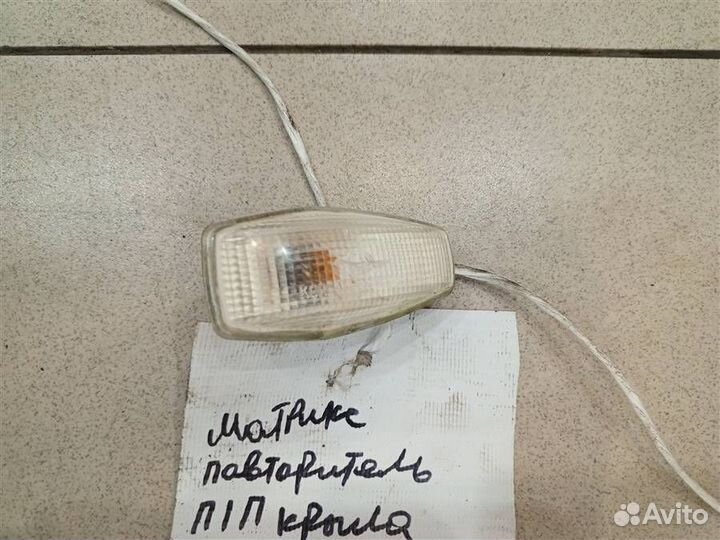 матрикс
павторитель
П/П крыла
Avito